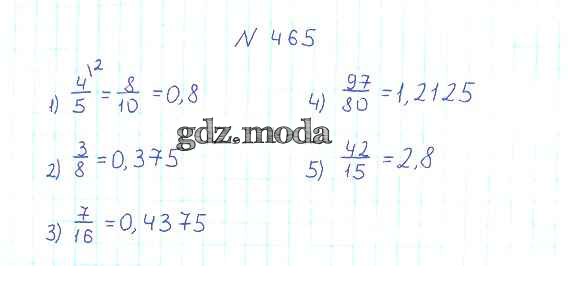 N 465
1) 4\2/5 = 8/10 = 0,8
2) 3/8 = 0,375
3) 7/16 = 0,4375
4) 97/80 = 1,2125
5) 42/15 = 2,8
gdz.moda